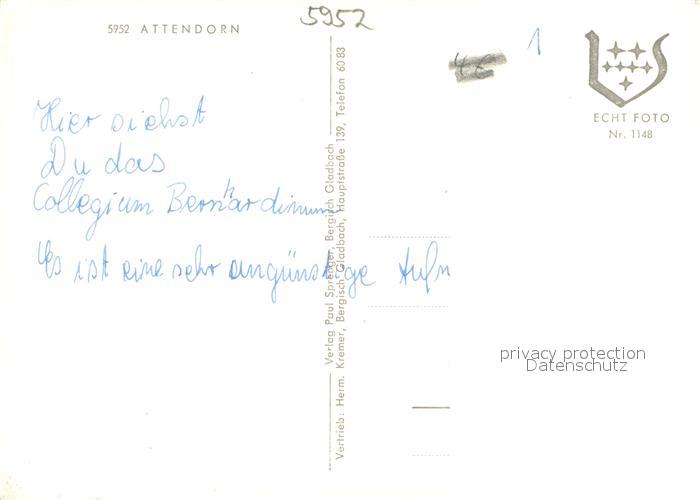 5952
5952 ATTENDORN
1
4€
ECHT FOTO
Nr. 1148
Hier siehst
Du das
Collegium Bernhardinum
Es ist eine sehr ungünstige Aufn
Verlag Paul Sprenger, Bergisch Gladbach
Vertrieb: Herm. Kremer, Bergisch Gladbach, Hauptstraße 139, Telefon 60 83
privacy protection
Datenschutz